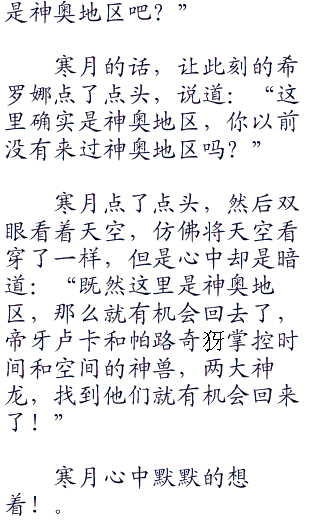 是神奥地区吧？”
寒月的话，让此刻的希
罗娜点了点头，说道：“这
里确实是神奥地区，你以前
没有来过神奥地区吗？”
寒月点了点头，然后双
眼看着天空，仿佛将天空看
穿了一样，但是心中却是暗
道：“既然这里是神奥地
区，那么就有机会回去了，
帝牙卢卡和帕路奇犽掌控时
间和空间的神兽，两大神
龙，找到他们就有机会回来
了！”
寒月心中默默的想
着！。